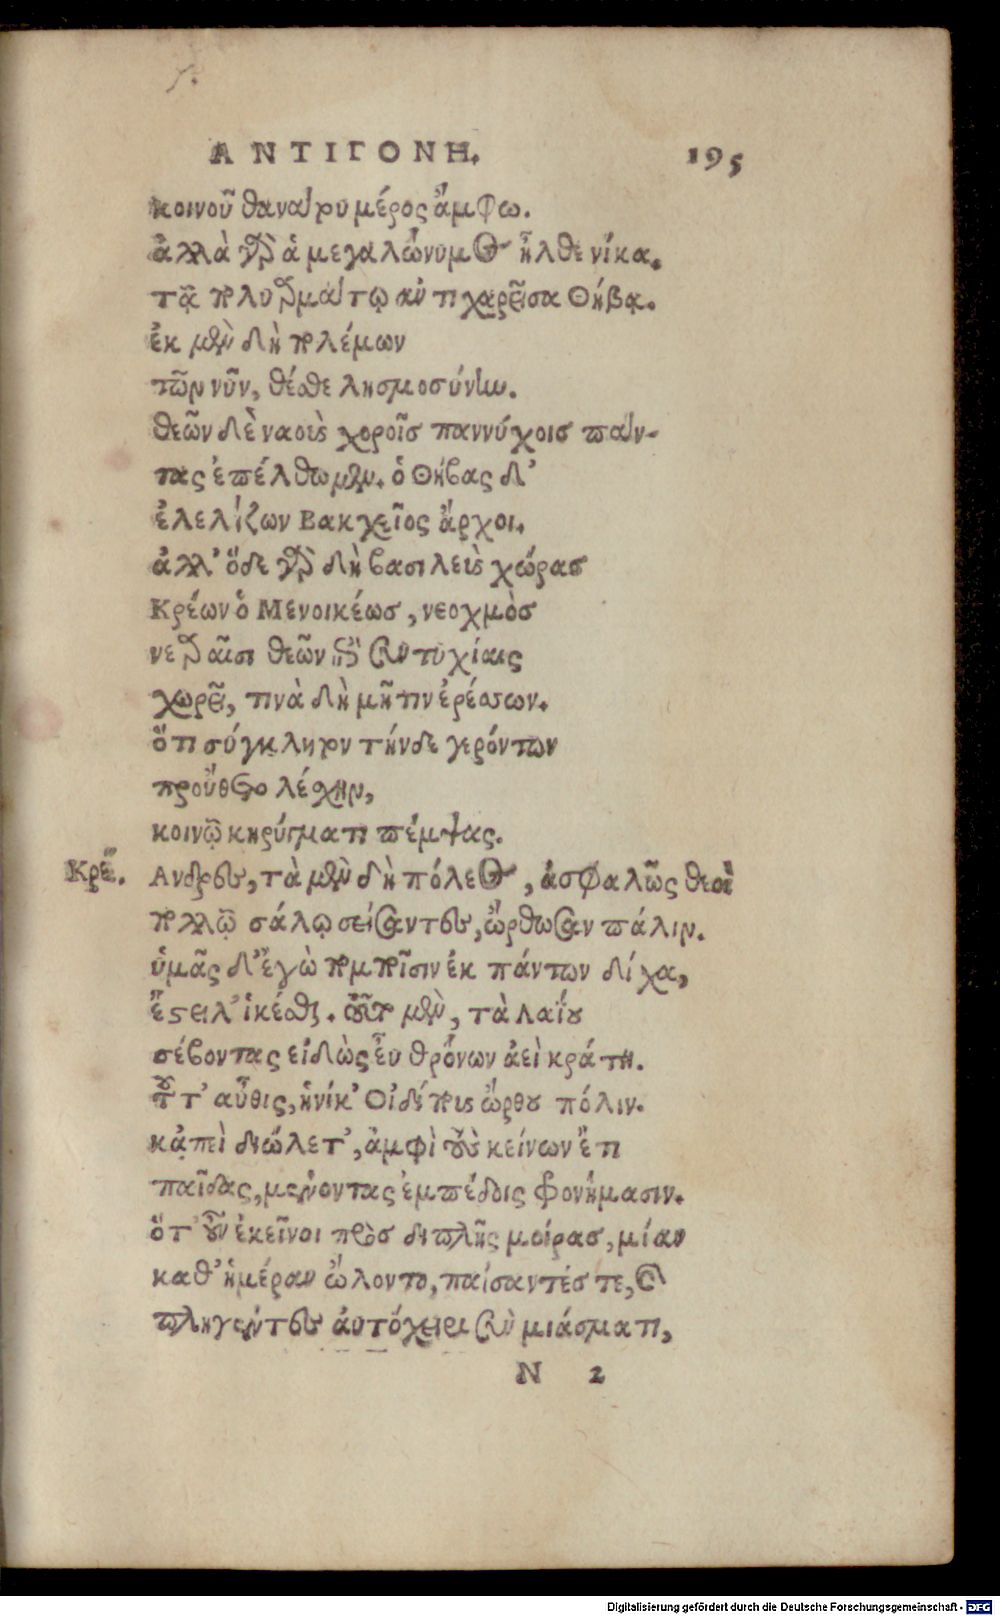 ΑΝΤΙΓΟΝΗ. 195
κοινοῦ θανάτου μέρος ἄμφω.
ἀλλὰ γὰρ ἁ μεγαλώνυμος ἦλθε νίκα.
τᾷ πολυαρμάτῳ ἀντιχαρεῖσα Θήβᾳ.
ἐκ μὲν δὴ πολέμων
τῶν νῦν, θέσθε λησμοσύνην.
θεῶν δὲ ναοὺς χοροῖς παννύχοις πάν-
τας ἐπέλθωμεν. ὁ Θήβας δ'
ἐλελίζων Βακχεῖος ἄρχοι.
ἀλλ' ὅδε γὰρ δὴ βασιλεὺς χώρας
Κρέων ὁ Μενοικέως, νεοχμὸς
νεαραῖσι θεῶν ἐπὶ συντυχίαις
χωρεῖ, τινὰ δὴ μῆτιν ἐρέσσων.
ὅτι σύγκλητον τήνδε γερόντων
προὔθετο λέσχην,
κοινῷ κηρύγματι πέμψας.
Κρέ. Ανδρες, τὰ μὲν δὴ πόλεος, ἀσφαλῶς θεοὶ
πολλῷ σάλῳ σείσαντες, ὤρθωσαν πάλιν.
ὑμᾶς δ' ἐγὼ πομποῖσιν ἐκ πάντων δίχα,
ἔστειλ' ἱκέσθαι. τοῦτο μὲν, τὰ Λαΐου
σέβοντας εἰδὼς εὖ θρόνων ἀεὶ κράτη.
τοῦτ' αὖθις, ἡνίκ' Οἰδίπους ὤρθου πόλιν.
κἀπεὶ διώλετ', ἀμφὶ τοὺς κείνων ἔτι
παῖδας, μένοντας ἐμπέδοις φρονήμασιν.
ὅτ' οὖν ἐκεῖνοι πρὸς διπλῆς μοίρας, μίαν
καθ' ἡμέραν ὤλοντο, παίσαντές τε, καὶ
πληγέντες αὐτόχειρι σὺν μιάσματι,
Ν 2
Digitalisierung gefördert durch die Deutsche Forschungsgemeinschaft - DFG